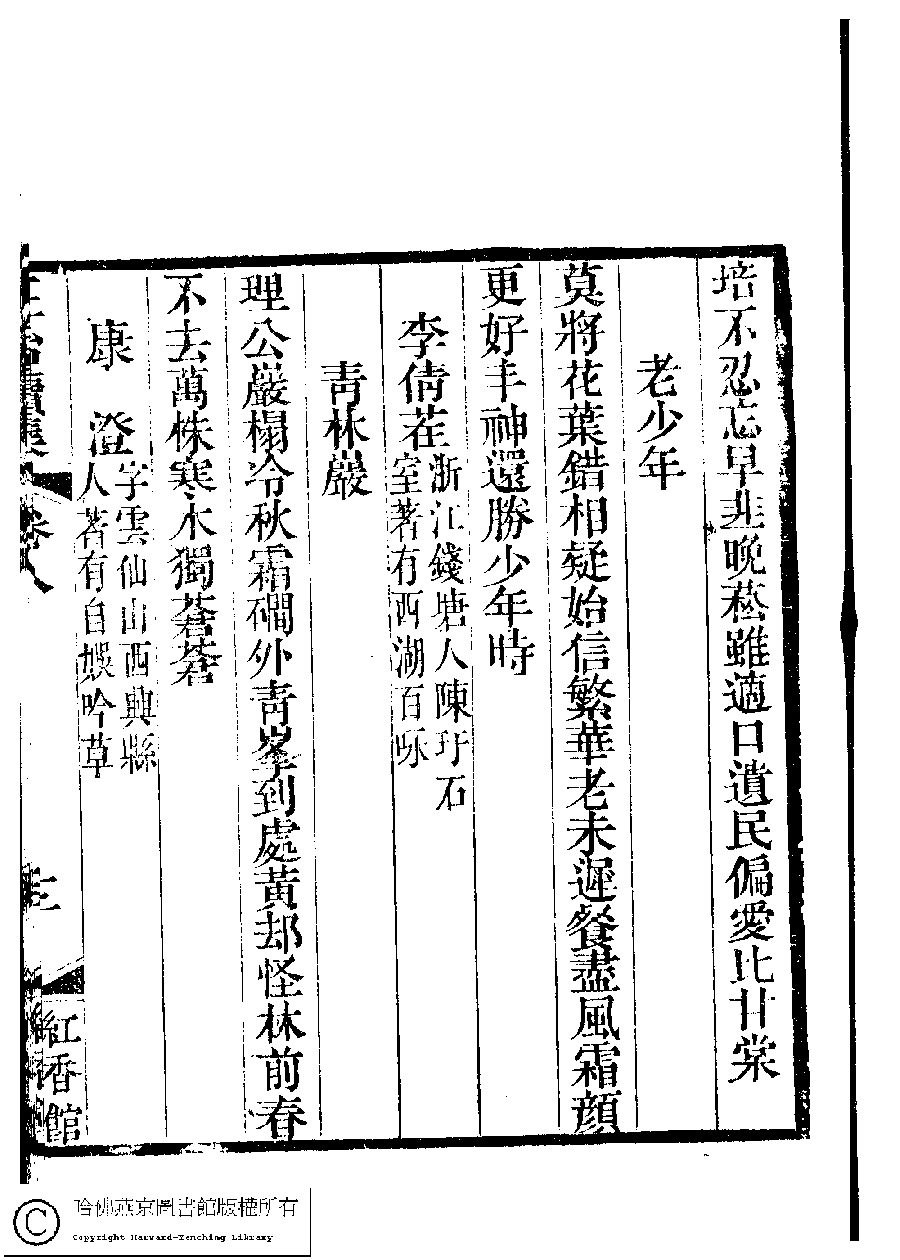 培不忍忘早韭晚菘雖適口遺民偏愛比甘棠
老少年
莫將花葉錯相疑始信繁華老未遲餐盡風霜顔
更好丰神還勝少年時
李倩茬浙江錢塘人陳玗石
室著有西湖百咏
靑林巖
理公巖榻冷秋霜礀外靑峯到處黃却怪林前春
不去萬株寒木獨蒼蒼
康澄字雲仙山西興縣
人著有自娛吟草
續集
卷八
三
紅香館
哈佛燕京圖書館版權所有
Copyright Harvard-Yenching Library